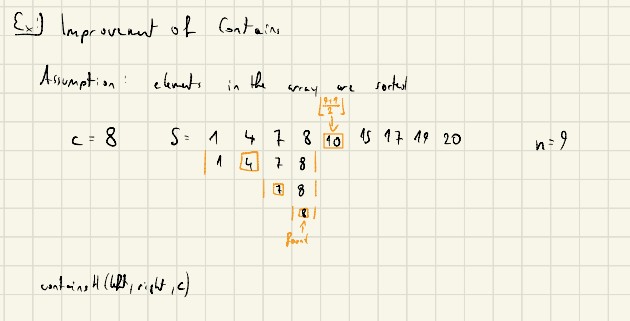 Ex:) Improvement of Contains
Assumption: elements in the array are sorted
⌊9+1/2⌋
c = 8 S = 1 4 7 8 10 15 17 19 20 n = 9
| 1 4 7 8 |
| 7 8 |
| 8 |
found
containsH (left, right, c)